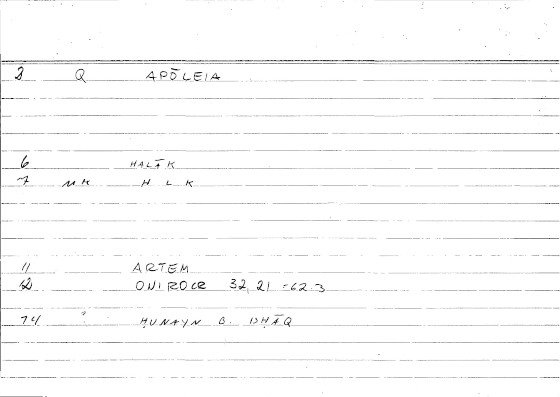 2 Q APŌLEIA
6 HALĀK
7 MK H L K
11 ARTEM
12 ONIROCR 32, 21 = 62.3
14 " ḤUNAYN B. ISḤĀQ